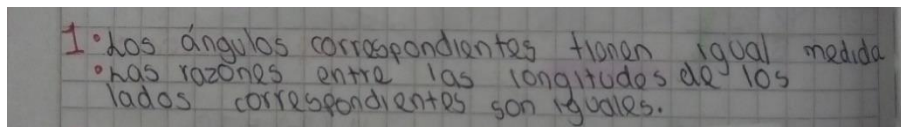 1 • Los ángulos correspondientes tienen igual medida
• Las razones entre las longitudes de los
lados correspondientes son iguales.